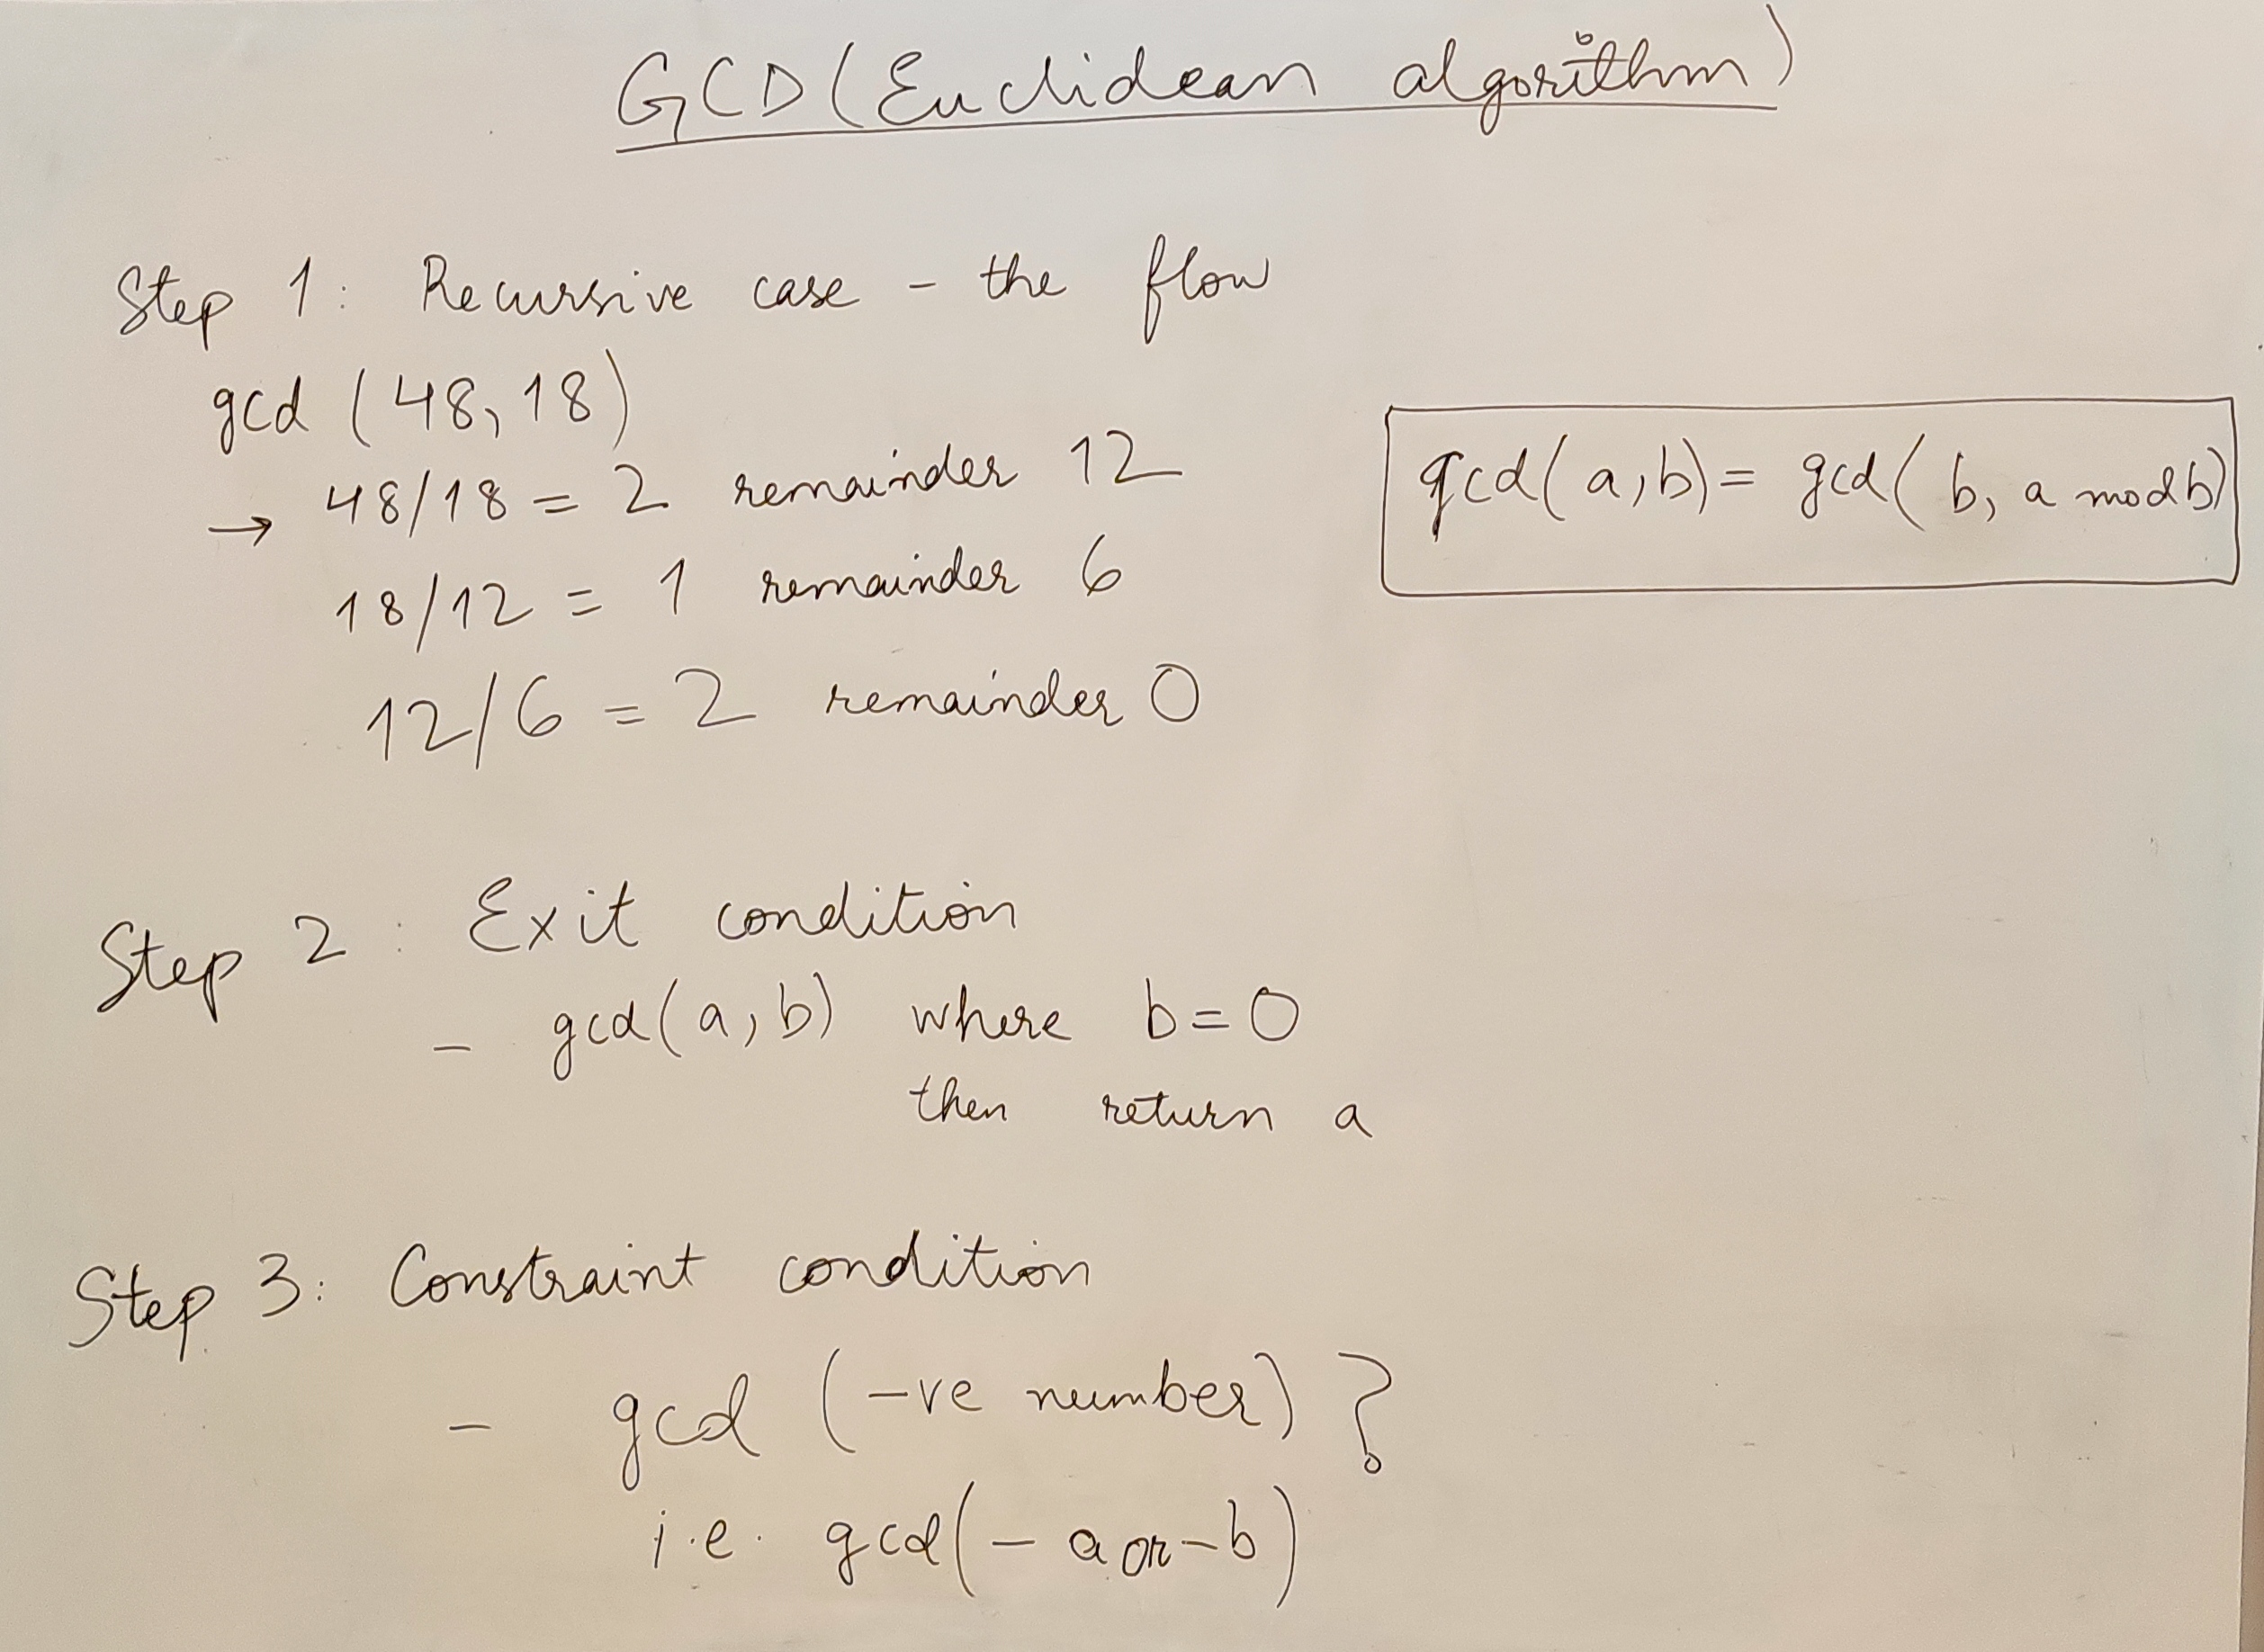 GCD (Euclidean algorithm)
Step 1: Recursive case - the flow
gcd (48, 18)
→ 48/18 = 2 remainder 12
18/12 = 1 remainder 6
12/6 = 2 remainder 0
gcd(a,b) = gcd(b, a mod b)
Step 2: Exit condition
- gcd(a,b) where b=0
then return a
Step 3: Constraint condition
- gcd (-ve number)?
i.e. gcd(-a or -b)